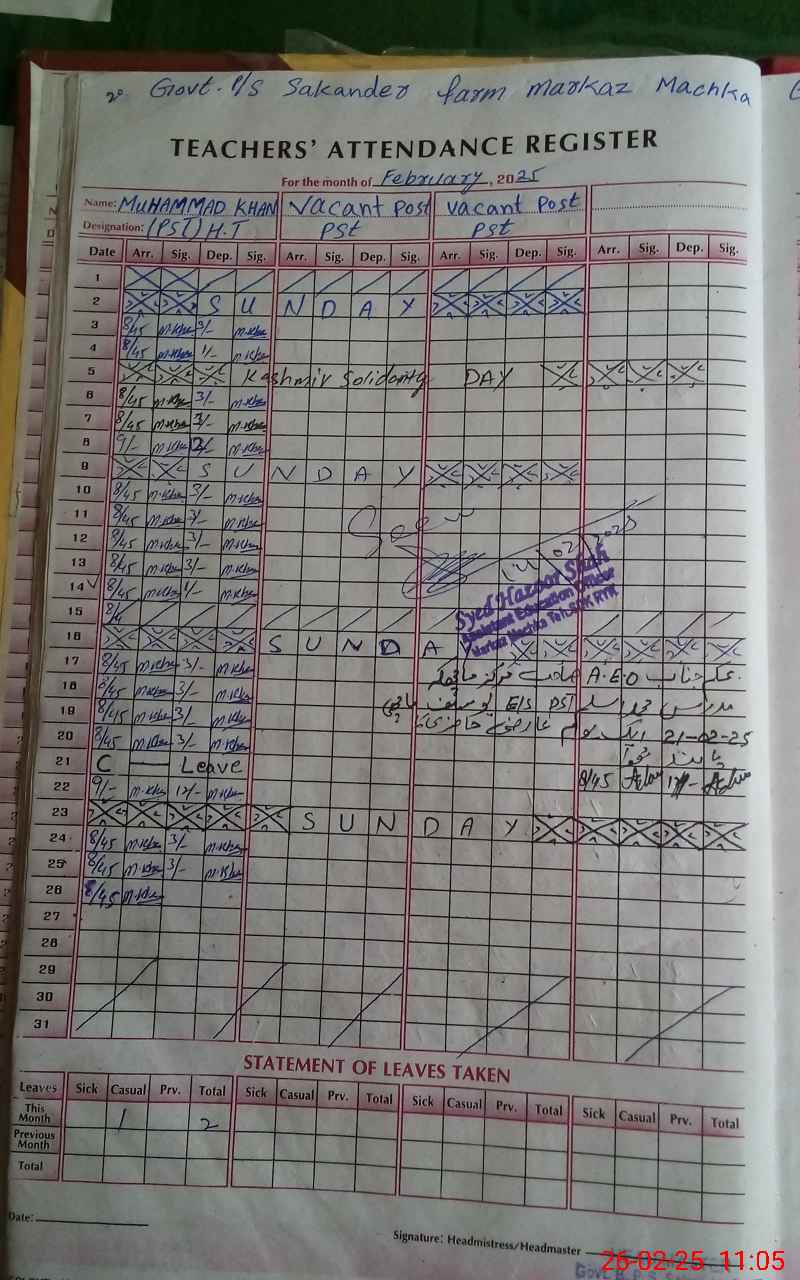 Govt. P/S Sakander farm markaz Machka
TEACHERS' ATTENDANCE REGISTER
For the month of February, 2025
Name: MUHAMMAD KHAN Vacant Post vacant post
Designation: (PST) H.T PSt PSt
Date Arr. Sig. Dep. Sig. Arr. Sig. Dep. Sig. Arr. Sig. Dep. Sig. Arr. Sig. Dep. Sig.
1
2 S U N D A Y
3 8/45 m.Khan 3/- m.Khan
4 8/45 m.Khan 1/- m.Khan
5 Kashmir Solidarity DAY
6 8/45 m.Khan 3/- m.Khan
7 8/45 m.Khan 3/- m.Khan
8 9/- m.Khan 12/- m.Khan
9 S U N D A Y
10 8/45 m.Khan 3/- m.Khan
11 8/45 m.Khan 3/- m.Khan
Seen
12 8/45 m.Khan 3/- m.Khan
13 8/45 m.Khan 3/- m.Khan
14/02/2025
14 8/45 m.Khan 1/- m.Khan
Syed Hazoor Shah
Assistant Education Officer
Markaz Machka Teh. SDK RYK
15 8/4
16 S U N D A Y
17 8/45 m.Khan 3/- m.Khan
جناب A.E.O صاحب مرکز ماچھکہ
18 8/45 m.Khan 3/- m.Khan
مدرس محمد اسلم PST E/S
19 8/45 m.Khan 3/- m.Khan
21-02-25 ایک یوم عارضی حاضری
20 8/45 m.Khan 3/- m.Khan
پابند ہوا
21 C — Leave 8/45 12/-
22 9/- m.Khan 12/- m.Khan
23 S U N D A Y
24 8/45 m.Khan 3/- m.Khan
25 8/45 m.Khan 3/- m.Khan
26 8/45 m.Khan
27
28
29
30
31
STATEMENT OF LEAVES TAKEN
Leaves Sick Casual Prv. Total Sick Casual Prv. Total Sick Casual Prv. Total Sick Casual Prv. Total
This Month 1 2
Previous Month
Total
Date:
Signature: Headmistress/Headmaster
26-02-25 11:05